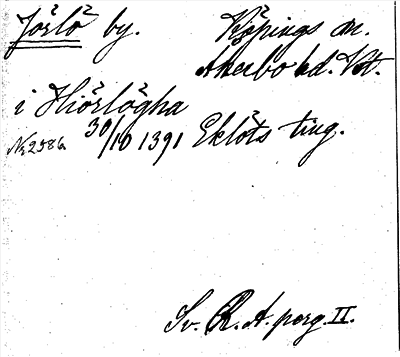 Jörlö by. Köpings sn.
Åkerbo hd. Vstt.
i Hiörlögha
Nr 2586 30/10 1391 Eklöts ting.
Sv. R. A. perg. II.